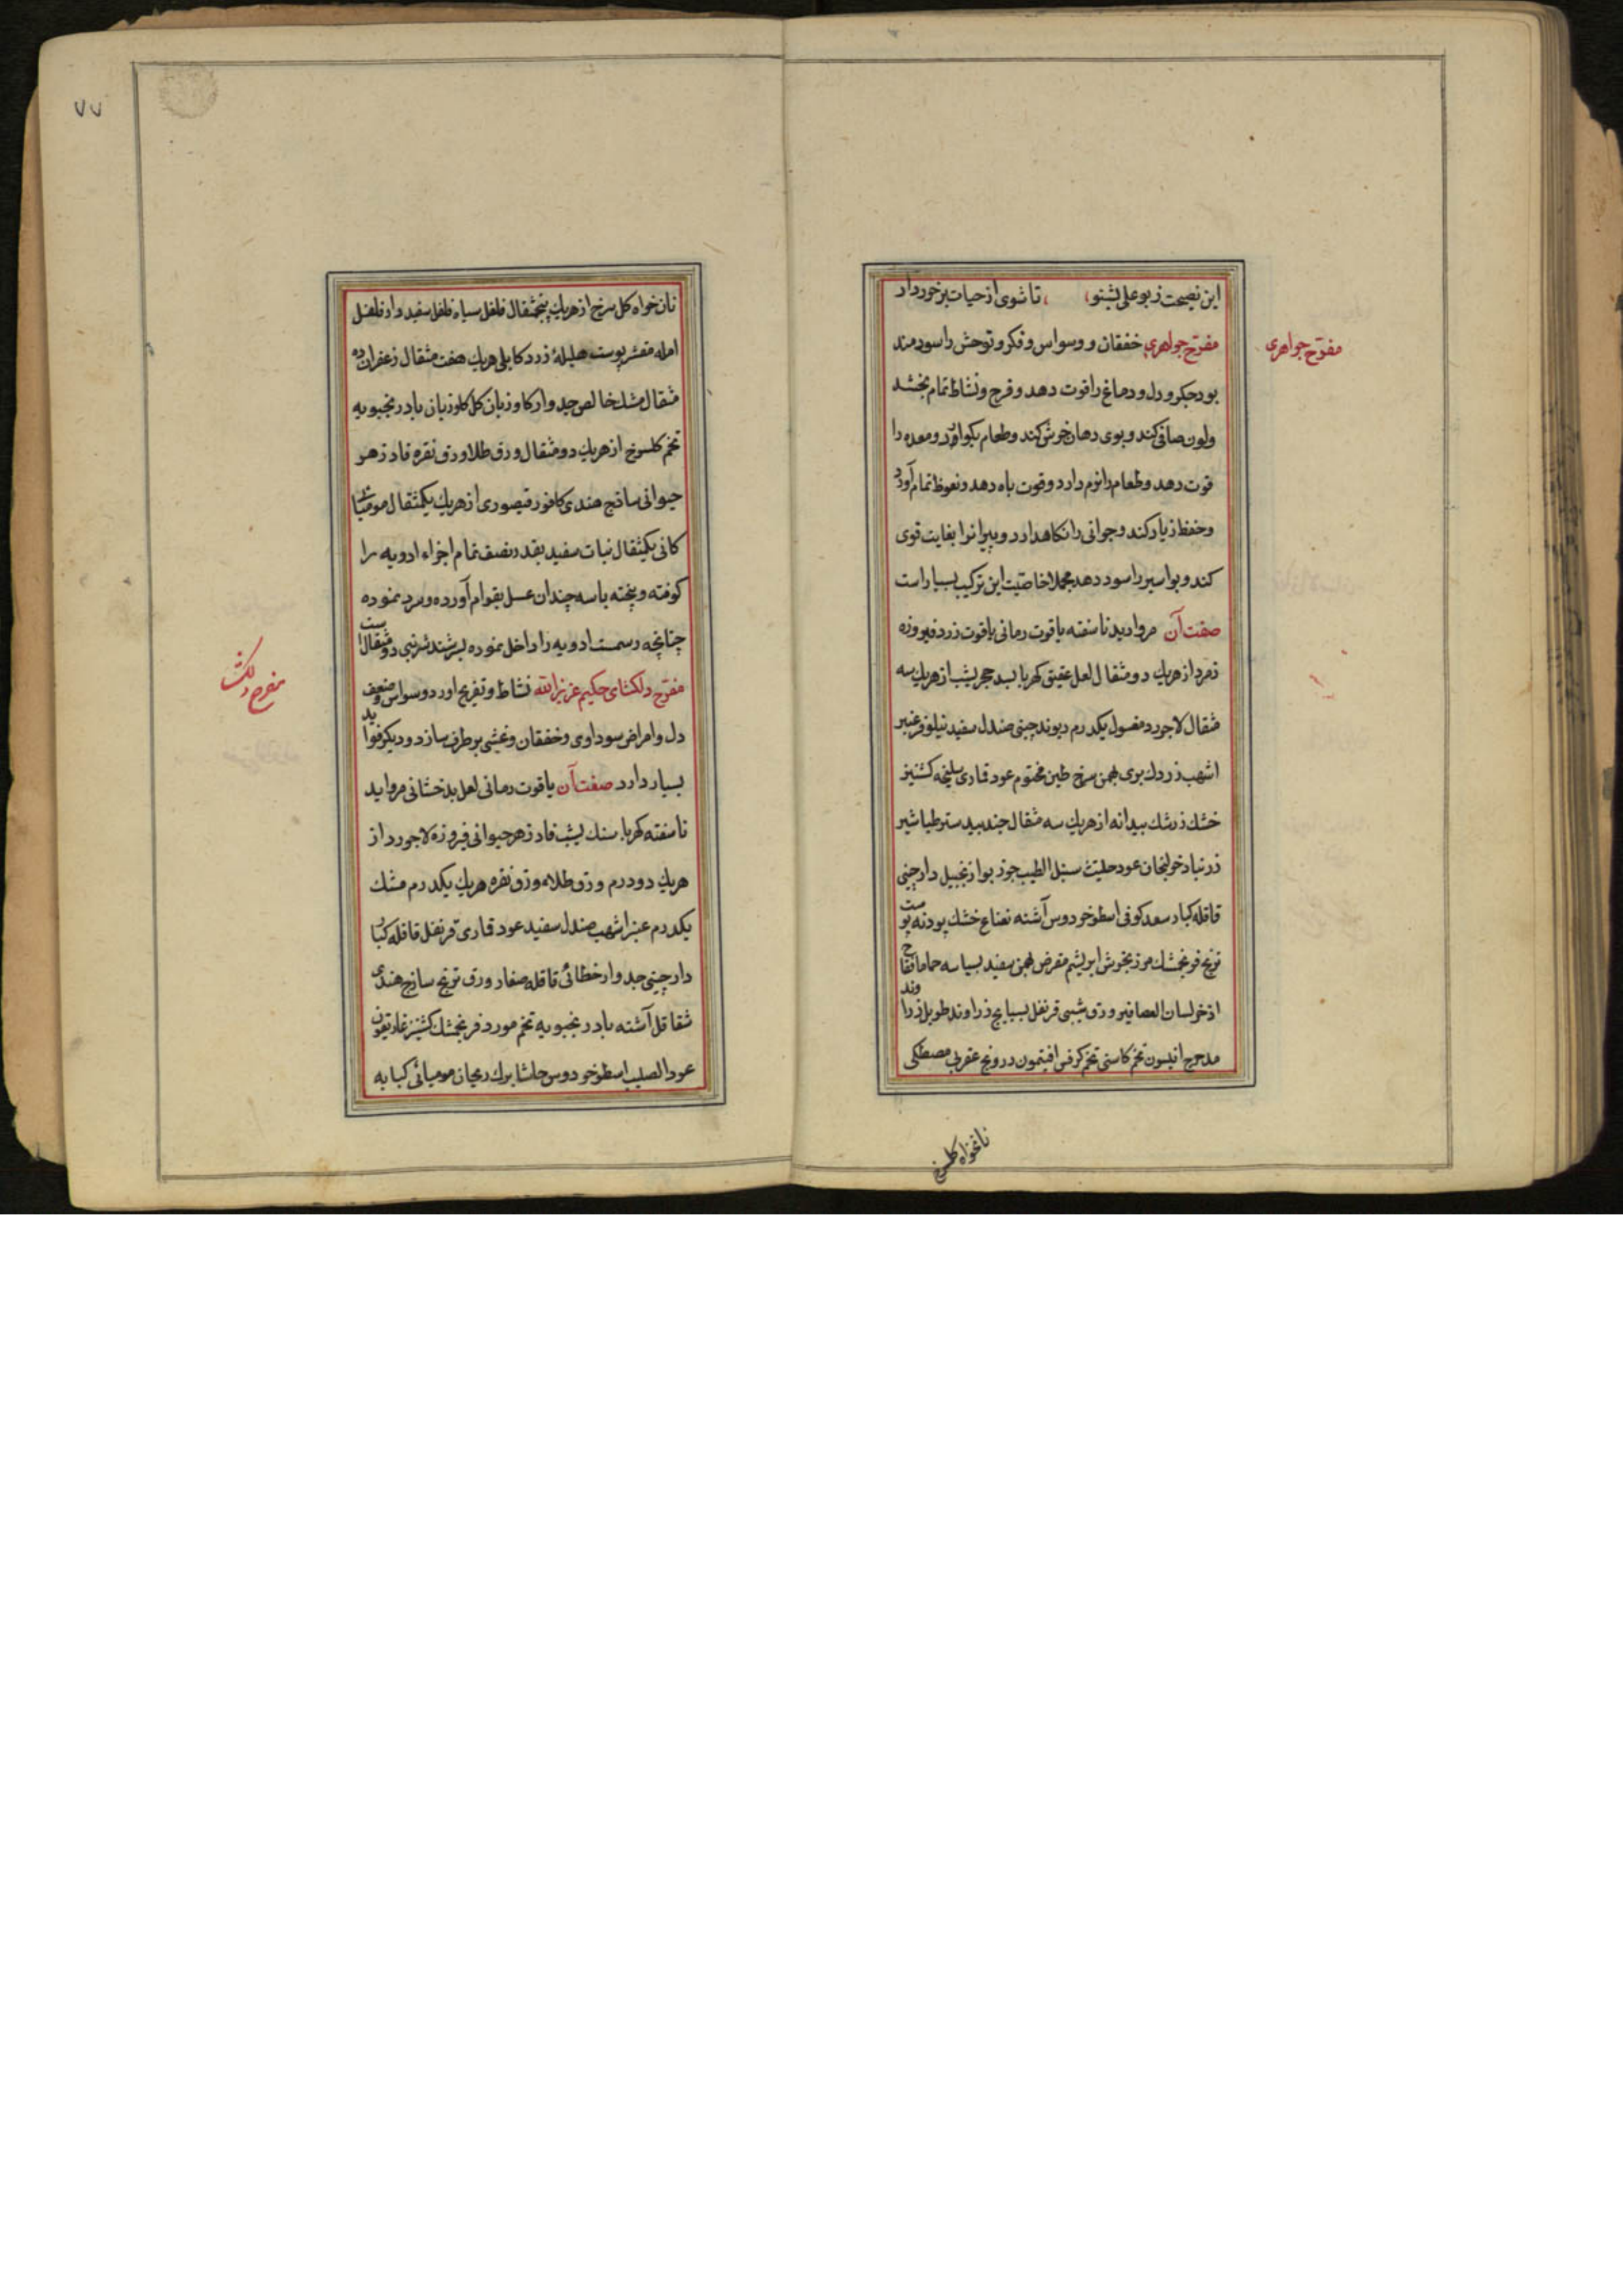 این نصیحت ز بوعلی بشنو، ، تا شوی از حیات برخوردار
مفرّح جواهری
مفرّح جواهری خفقان و وسواس و فکر و توحش را سودمند
بود جکر و دل و دماغ را قوت دهد و فرح و نشاط تمام بخشد
ولون صافی کند و بوی دهان خوش کند و طعام بکوارد و معده را
قوت دهد و طعام را دارد و قوت باه دهد و نعوظ تمام آورد
و حفظ زیاد کند و جوانی را نکاهدارد و پیرانرا بغایت قوی
کند و بواسیر را سود دهد مجملا خاصیت این ترکیب بسیار است
صفت آن مروارید ناسفته یاقوت رمانی یاقوت زرد فیروزه
زمرد از هریک دو مثقال لعل عقیق کهربا بسد حجر یشب از هریک سه
مثقال لاجورد مغسول یکدرم ریوند چینی صندل سفید نیلوفر عنبر
اشهب زردک بری بهمن سرخ طین مختوم عود قماری سلیخه کشنیز
خشک زرشک بیدانه از هریک سه مثقال جندبیدستر طباشیر
زرنباد خولنجان عود حلتیث سنبل الطیب جوزبوا زنجبیل دارچینی
قاقله کبار سعد کوفی اسطوخودوس آشنه نعناع خشک پودنه پوست
ترنج فرنجمشک مرزنجوش ابریشم مقرض بهمن سفید بسباسه حماما فقاح
اذخر لسان العصافیر ورق قرنفل بسبایج زراوند طویل زراوند
مدحرج انیسون تخم کاسنی تخم کرفس افتیمون درونج عقربی مصطکی
نانخواه کلسرخ
۷۷
نان خواه کل سرخ از هریک پنجمثقال فلفل سیاه فلفل سفید دارفلفل
امله مقشر پوست هلیلهٔ زرد کابلی هریک هفت مثقال زعفران ده
مثقال مشک خالص جدوار کاوزبان کل کاوزبان بادرنجبویه
تخم کلسرخ از هریک دو مثقال ورق طلا ورق نقره فادزهر
حیوانی ساذج هندی کافور قیصوری از هریک یکمثقال مومیائی
کانی یکمثقال نبات سفید بقدر نصف تمام اجزاء ادویه را
کوفته و پخته با سه چندان عسل بقوام آورده و سرد نموده
چنانچه رسمست ادویه را داخل نموده بسرشند شربتی دو مثقال است
مفرّح دلکشای حکیم عزیز الله نشاط و تفریح اورد و وسواس و ضعف
مفرح دلکشا
دل و امراض سوداوی و خفقان و غشی برطرف سازد و دیکر فواید
بسیار دارد صفت آن یاقوت رمانی لعل بدخشانی مروارید
ناسفته کهربا سنک یشب فادزهر حیوانی فیروزه لاجورد از
هریک دو درم ورق طلا ورق نقره هریک یکدرم مشک
یکدرم عنبر اشهب صندل سفید عود قماری قرنفل قاقله کبار
دارچینی جدوار خطائی قاقله صغار ورق ترنج ساذج هندی
شقاقل آشنه بادرنجبویه تخم مورد فرنجمشک کشنیز غاریقون
عود الصلیب اسطوخودوس برک ریحان مومیائی کبابه